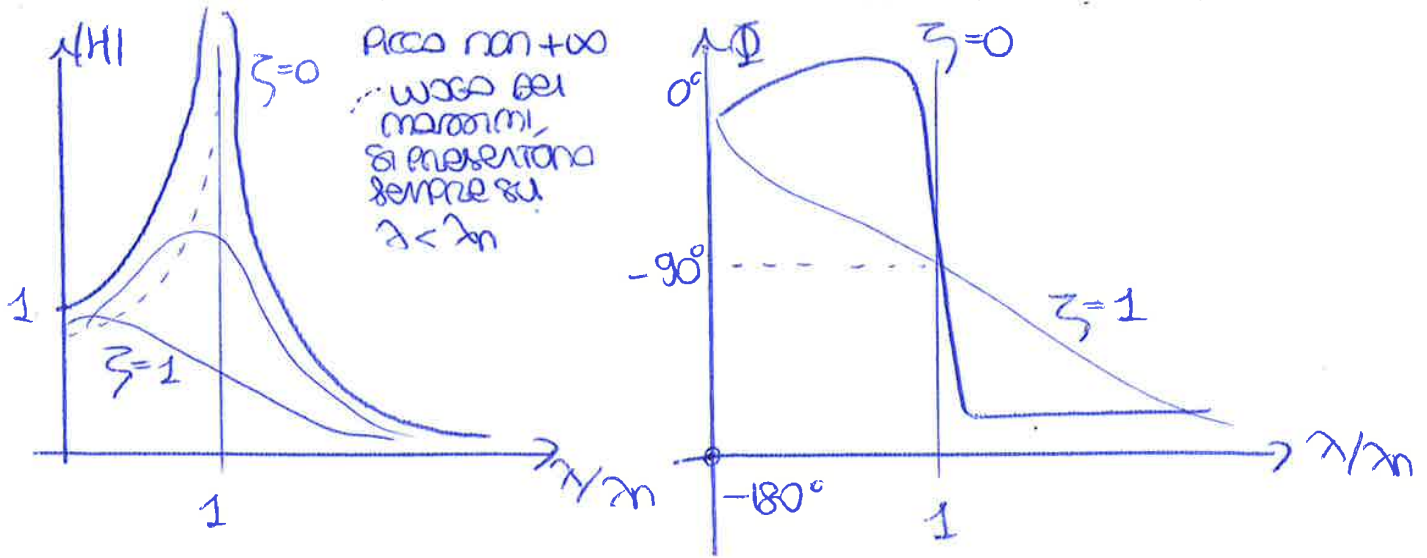 |H|
ζ=0
PICCO non +∞
LUOGO DEI
MASSIMI,
SI PRESENTANO
SEMPRE SU
λ<λn
1
ζ=1
1
λ/λn
Φ
ζ=0
0°
-90°
ζ=1
-180°
1
λ/λn